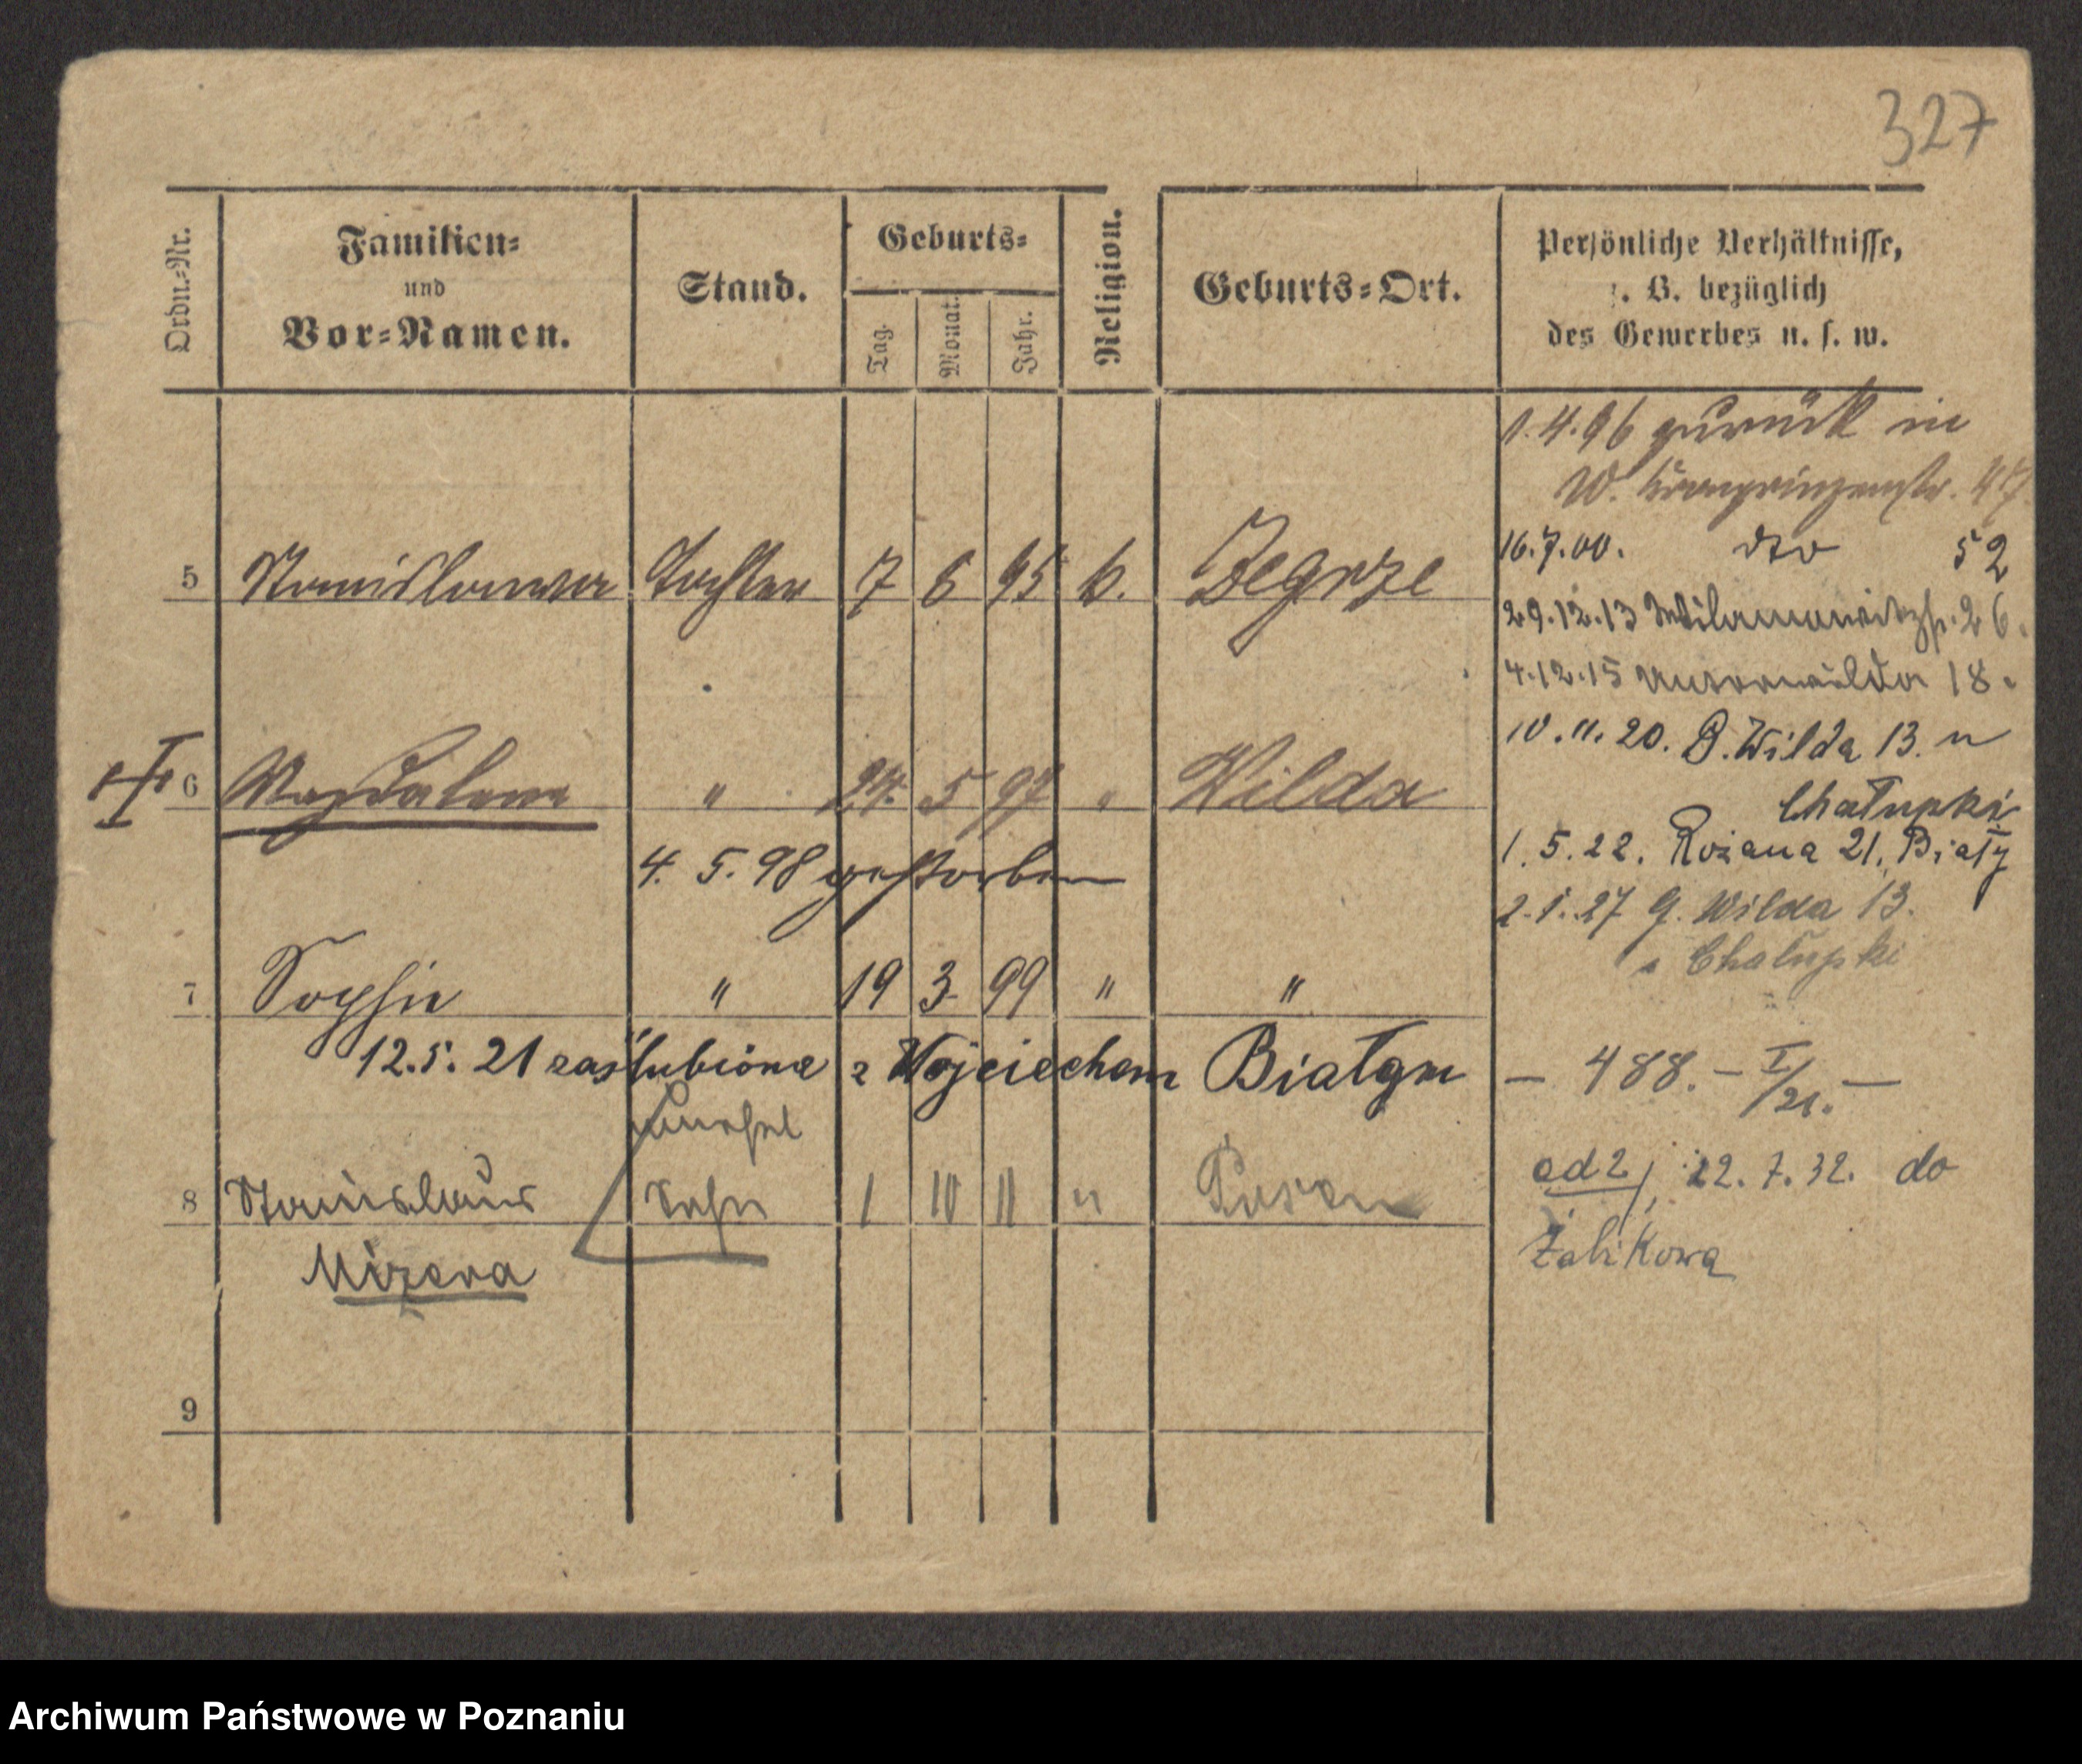 327
Ordn.-Nr.
Familien-
und
Vor-Namen.
Stand.
Geburts-
Tag.
Monat.
Jahr.
Religion.
Geburts-Ort.
Persönliche Verhältnisse,
z. B. bezüglich
des Gewerbes u. s. w.
1.4.96 zurück in
W. Kronprinzenstr. 47
16.7.00. dto 52
5 Stanislawa Tochter 7 6 95 k. Zegrze
29.12.13 Wilamowitzstr. 26.
4.12.15 Unterwilda 18.
10.11.20. G. Wilda 13. u
Chałupki
6 Magdalena " 24. 5 97 " Wilda
4. 5. 98 gestorben
1.5.22. Różana 21, Biały
2.1.27 G. Wilda 13.
Chałupki
7 Sophie " 19 3 99 " "
12.5.21 zaślubiona z Wojciechem Białym
- 488. - I/21. -
8 Stanislaus Sohn 1 10 11 " Posen
Mizera
ad 2, 22.7.32. do
Żabikowa
9
Archiwum Państwowe w Poznaniu